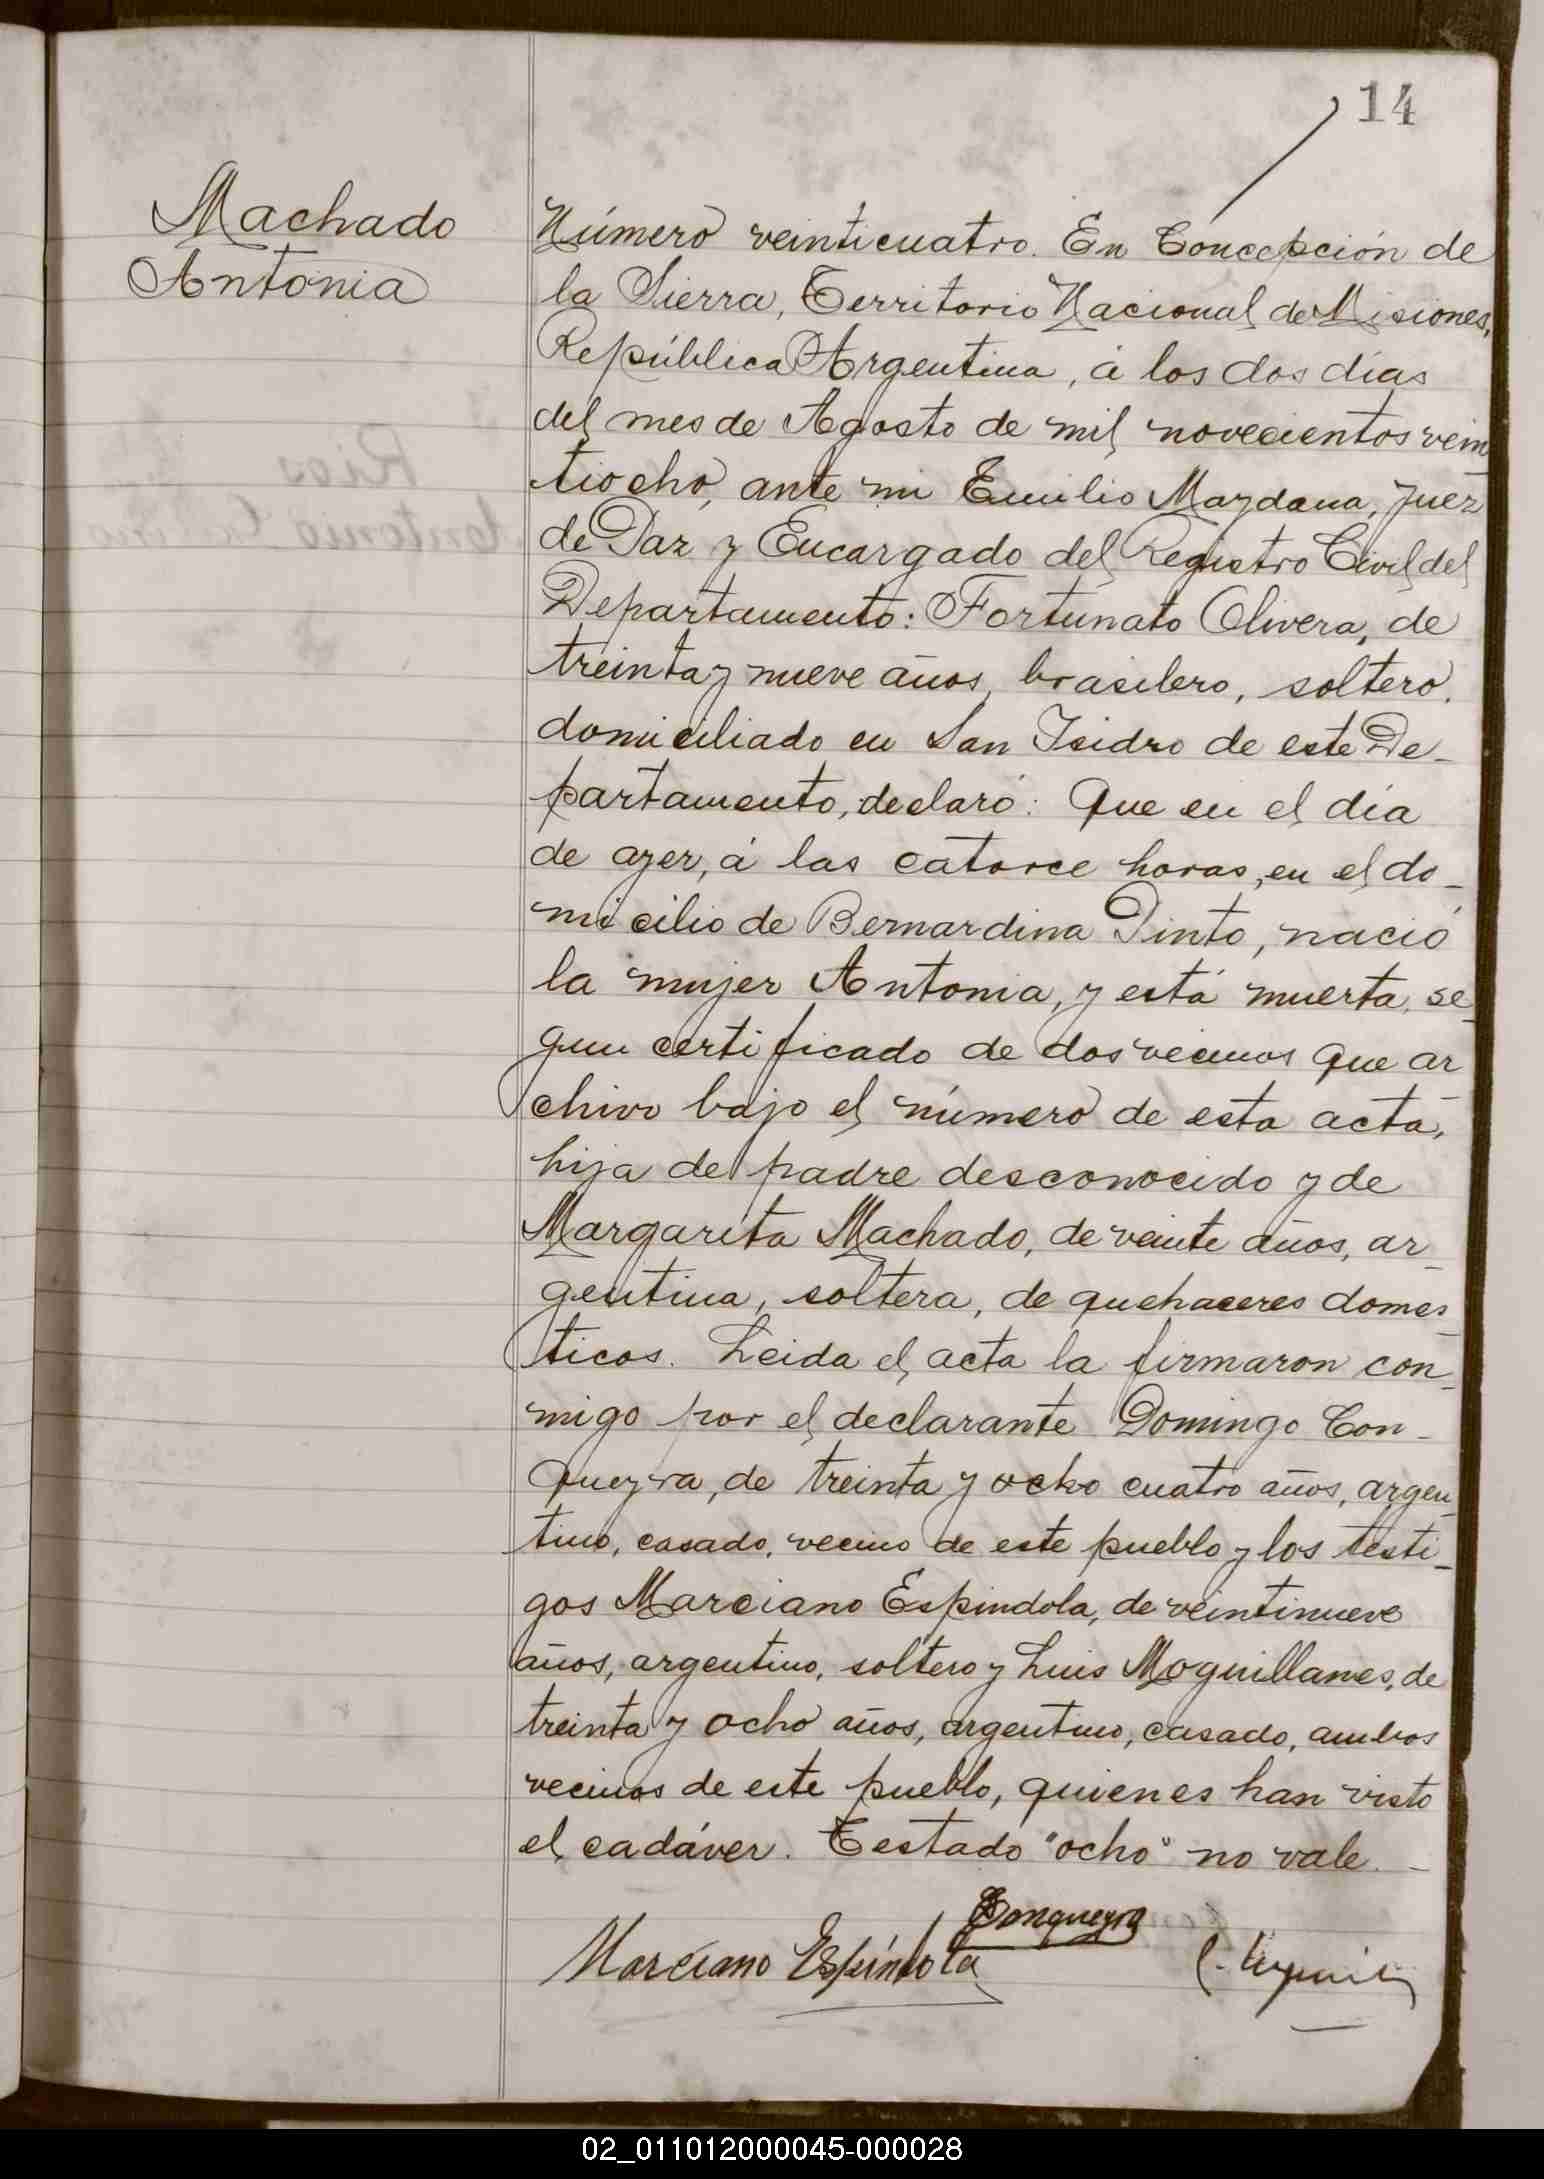 14
Machado
Antonia
Número veinticuatro. En Concepción de
la Sierra, Territorio Nacional de Misiones,
República Argentina, á los dos dias
del mes de Agosto de mil novecientos vein
tiocho, ante mi Emilio Maydana, Juez
de Paz y Encargado del Registro Civil del
Departamento: Fortunato Olivera, de
treinta y nueve años, brasilero, soltero,
domiciliado en San Isidro de este De-
partamento, declaró: Que en el dia
de ayer, á las catorce horas, en el do-
micilio de Bernardina Pinto, nació
la mujer Antonia, y está muerta, se
gun certificado de dos vecinos que ar
chivo bajo el número de esta acta,
hija de padre desconocido y de
Margarita Machado, de veinte años, ar-
gentina, soltera, de quehaceres domes
ticos. Leida el acta la firmaron con-
migo por el declarante Domingo Con-
queyra, de treinta y ocho cuatro años, argen
tino, casado, vecino de este pueblo y los testi-
gos Marciano Espindola, de veintinueve
años, argentino, soltero y Luis Moguillanes, de
treinta y ocho años, argentino, casado, ambos
vecinos de este pueblo, quienes han visto
el cadáver. Testado "ocho" no vale. -
Conqueyra
Marciano Espíndola
02_011012000045-000028